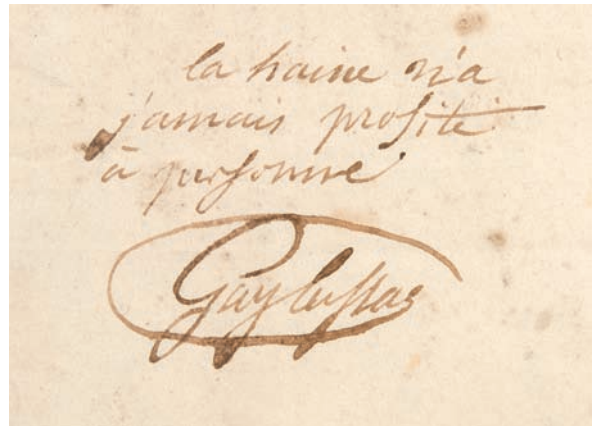 la haine n'a
jamais profité
à personne
Gay Lussac